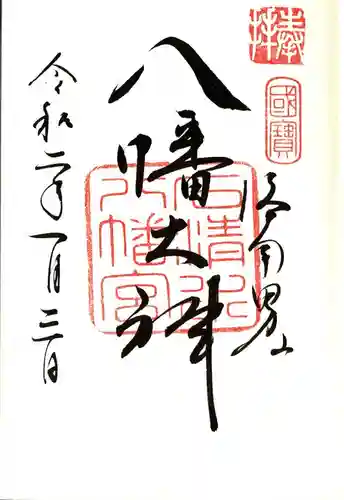 奉拝
國寶
洛南男山
八幡大神
石清水
八幡宮
令和二年一月三日